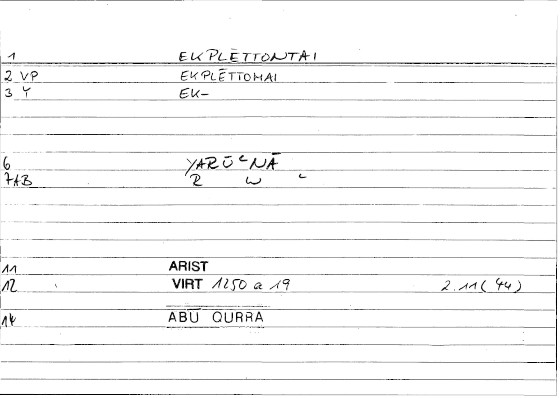 1 EKPLĒTTONTAI
2 VP EKPLĒTTOMAI
3 Y EK-
6 YARŪʿNĀ
7AB R W ʿ
11 ARIST
12 VIRT 1250 a 19 2.11(44)
14 ABŪ QURRA